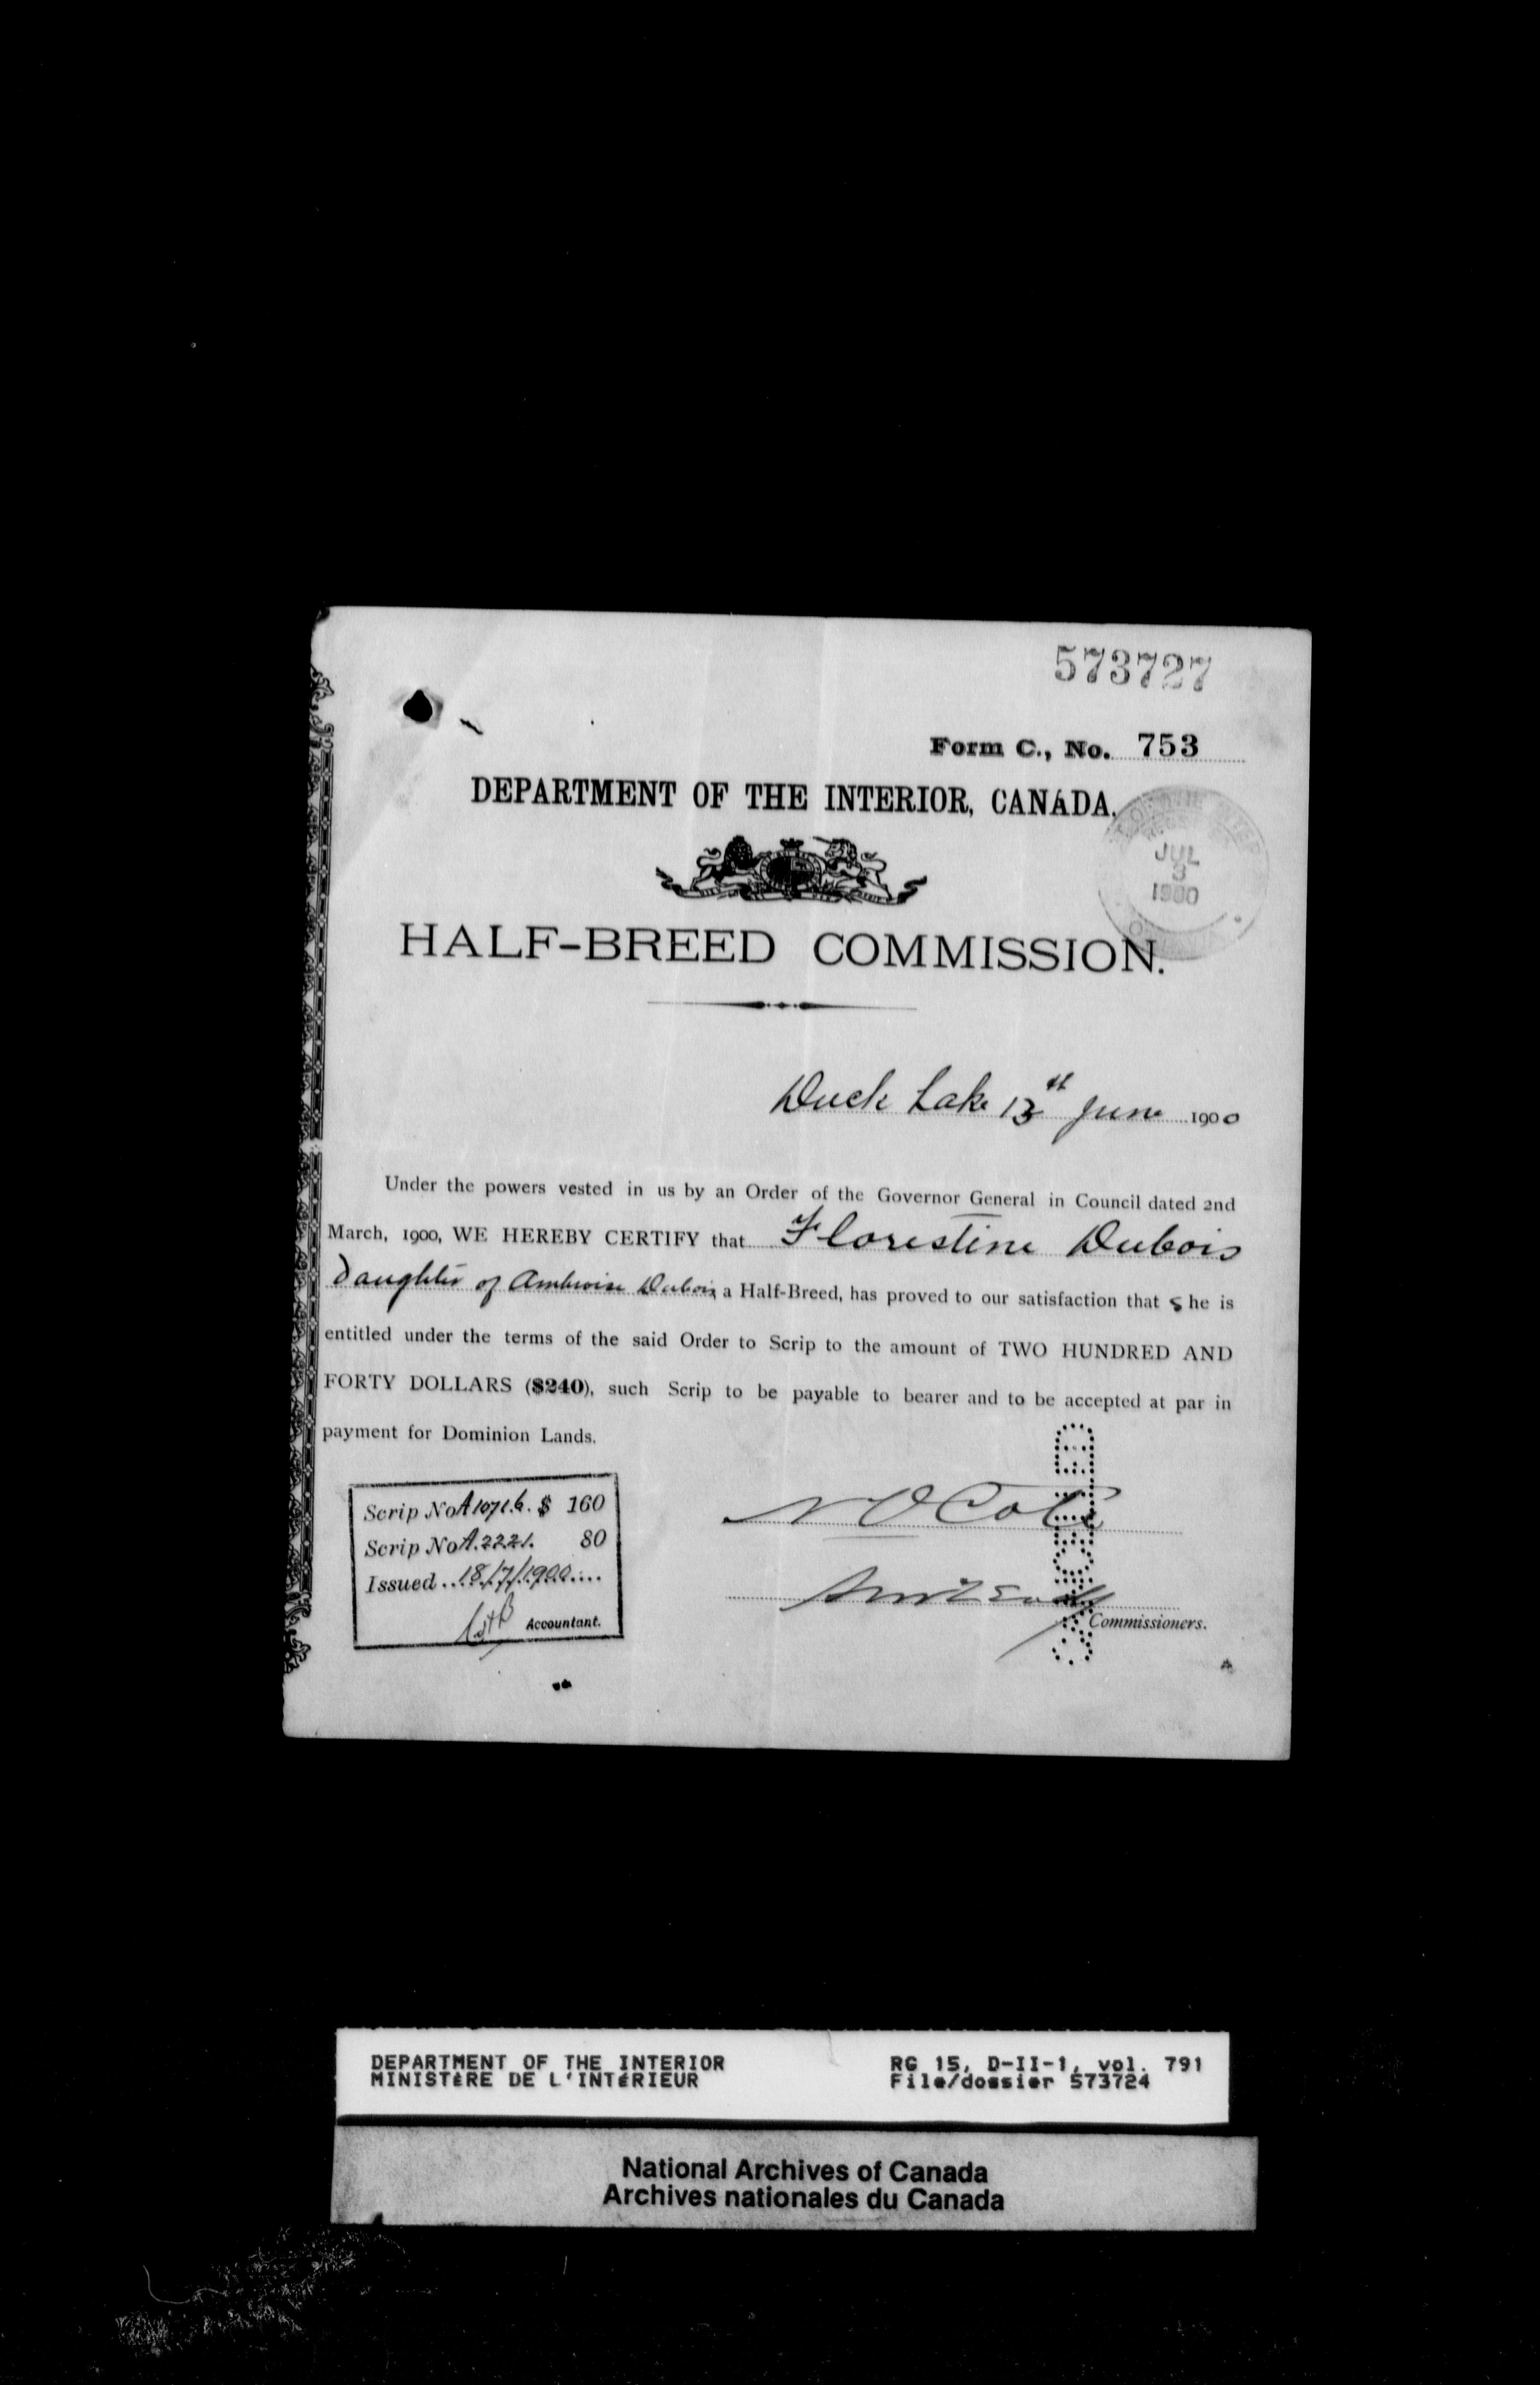 573727
Form C., No. 753
DEPARTMENT OF THE INTERIOR, CANADA.
JUL
3
1900
HALF-BREED COMMISSION.
Duck Lake 13th June 1900
Under the powers vested in us by an Order of the Governor General in Council dated 2nd
March, 1900, WE HEREBY CERTIFY that Florestine Dubois
Daughter of Ambroise Dubois a Half-Breed, has proved to our satisfaction that s he is
entitled under the terms of the said Order to Scrip to the amount of TWO HUNDRED AND
FORTY DOLLARS ($240), such Scrip to be payable to bearer and to be accepted at par in
payment for Dominion Lands.
Scrip No A $ 160
Scrip No A.2221. 80
Issued 18/7/1900
Accountant.
N O Coté
Commissioners.
DEPARTMENT OF THE INTERIOR
MINISTÈRE DE L'INTÉRIEUR
RG 15, D-II-1, vol. 791
File/dossier 573724
National Archives of Canada
Archives nationales du Canada